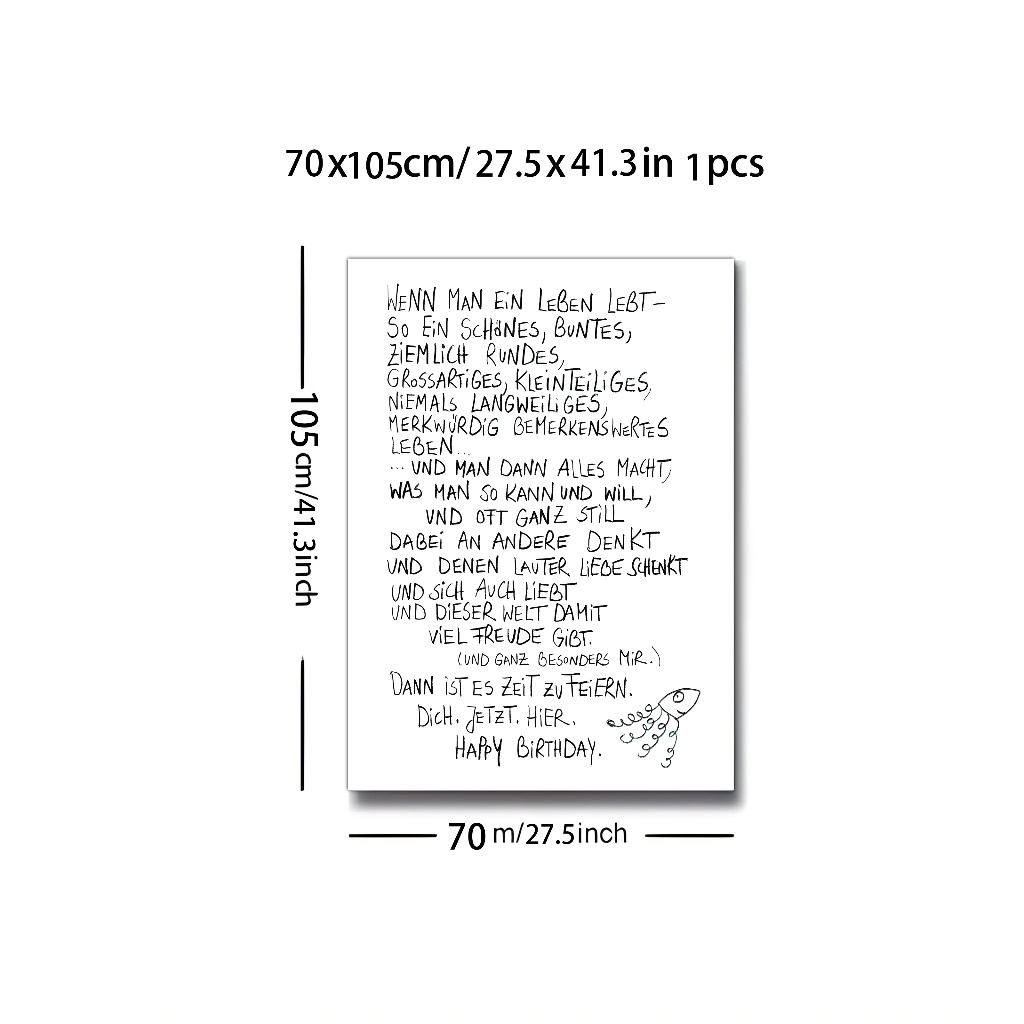 70x105cm/27.5x41.3in 1pcs
WENN MAN EIN LEBEN LEBT–
SO EIN SCHÖNES, BUNTES,
ZIEMLICH RUNDES,
GROSSARTIGES, KLEINTEILIGES,
NIEMALS LANGWEILIGES,
MERKWÜRDIG BEMERKENSWERTES
LEBEN...
... UND MAN DANN ALLES MACHT,
WAS MAN SO KANN UND WILL,
UND OFT GANZ STILL
DABEI AN ANDERE DENKT
UND DENEN LAUTER LIEBE SCHENKT
UND SICH AUCH LIEBT
UND DIESER WELT DAMIT
VIEL FREUDE GIBT.
(UND GANZ BESONDERS MIR.)
DANN IST ES ZEIT ZU FEIERN.
DICH. JETZT. HIER.
HAPPY BIRTHDAY.
105cm/41.3inch
70m/27.5inch